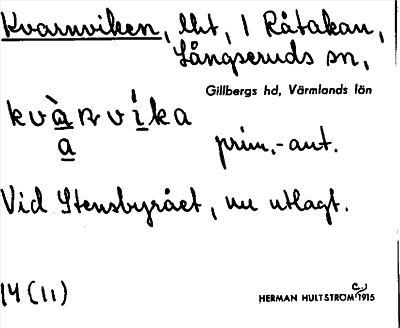 Kvarnviken, lht, 1 Råtakan,
Långseruds sn,
Gillbergs hd, Värmlands län
kvàrnvíka
a
prim.-aut.
Vid Stensbyrået, nu utlagt.
14 (11)
HERMAN HULTSTRÖM 1915